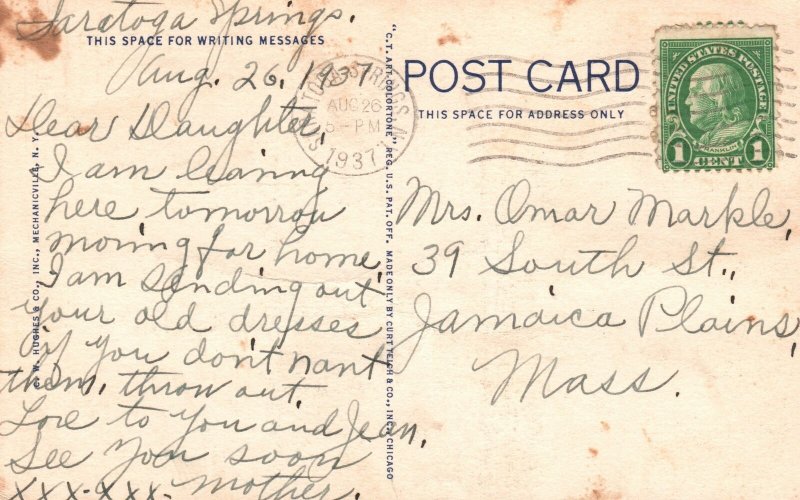 Saratoga Springs.
THIS SPACE FOR WRITING MESSAGES
Aug. 26, 1937
Dear Daughter,
I am leaving
here tomorrow
moring for home,
I am sending out
your old dresses
if you don't want
them, throw out.
Love to you and Jean.
See you soon
XXX-XXX- mother.
C. W. HUGHES & CO., INC., MECHANICVILLE, N. Y.
"C. T. ART-COLORTONE" REG. U. S. PAT. OFF. MADE ONLY BY CURT TEICH & CO., INC., CHICAGO
SARATOGA SPRINGS, N.Y.
AUG 26
5 - PM
1937
POST CARD
THIS SPACE FOR ADDRESS ONLY
UNITED STATES POSTAGE
FRANKLIN
1 CENT 1
Mrs. Omar Markle,
39 South St.,
Jamaica Plains,
Mass.